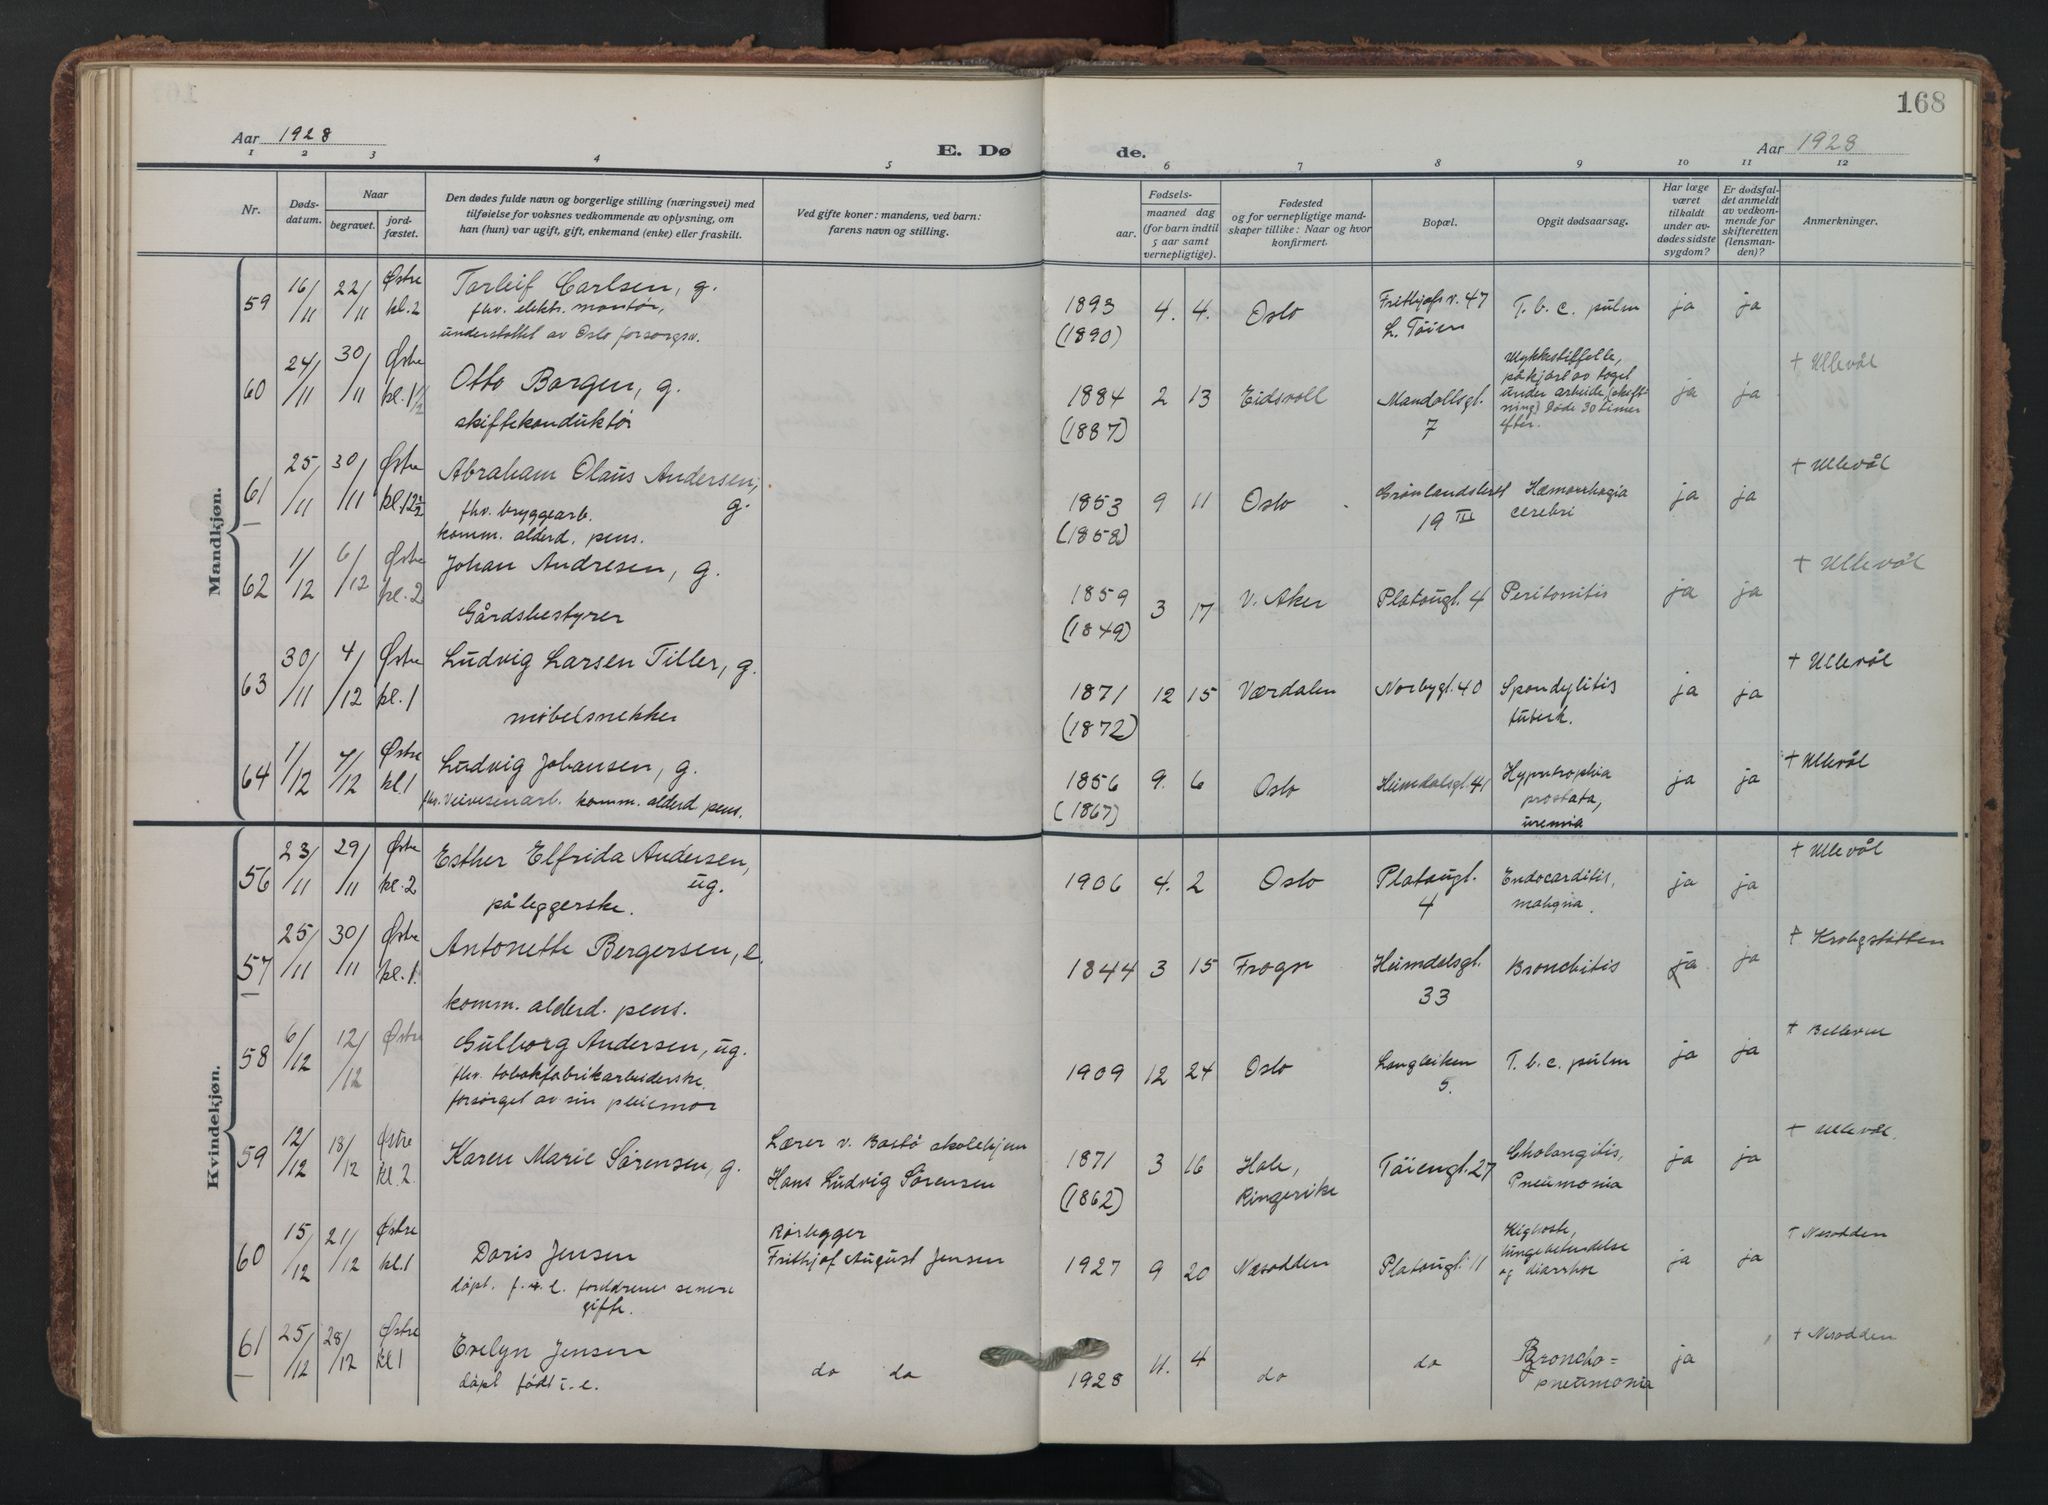 168
Aar 1928
E. Dø
de.
Aar 1928
1 2 3 4 5 6 7 8 9 10 11 12
Nr.
Døds-
datum.
Naar
begravet.
jord-
fæstet.
Den dødes fulde navn og borgerlige stilling (næringsvei) med
tilføielse for voksnes vedkommende av oplysning, om
han (hun) var ugift, gift, enkemand (enke) eller fraskilt.
Ved gifte koner: mandens, ved barn:
farens navn og stilling.
Fødsels-
aar.
maaned dag
(for barn indtil
5 aar samt
vernepligtige).
Fødested
og for vernepligtige mand-
skaper tillike: Naar og hvor
konfirmert.
Bopæl.
Opgit dødsaarsag.
Har læge
været
tilkaldt
under av-
dødes sidste
sygdom?
Er dødsfal-
det anmeldt
av vedkom-
mende for
skifteretten
(lensman-
den)?
Anmerkninger.
Mandkjøn.
59 16/11 22/11 Østre kl. 2 Torleif Carlsen, g. 1893 4. 4. Oslo Frithjofs v. 47 T. b. c. pulm ja ja
fhv. elektr. montør, (1890) L. Töien
understøttet av Oslo forsorgsv.
60 24/11 30/11 Østre kl. 1 1/2 Otto Borgen, g. 1884 2 13 Eidsvoll Mandallsgt. 7 Ulykkestilfelle, ja ja + Ullevål
skiftekonduktør (1887) påkjørt av toget
under arbeide (skift-
ning) døde 30 timer
efter.
61 25/11 30/11 Østre kl. 12 1/2 Abraham Olaus Andersen, g. 1853 9 11 Oslo Grønlandsleret 19 III Hæmorrhagia ja ja + Ullevål
fhv. bryggearb. (1858) cerebri
komm. alderd. pens.
62 1/12 6/12 Østre kl. 2 Johan Andresen, g. 1859 3 17 V. Aker Platougt. 4 Peritonitis ja ja + Ullevål
Gårdsbestyrer (1849)
63 30/11 4/12 Østre kl. 1 Ludvig Larsen Tiller, g. 1871 12 15 Værdalen Norbygt. 40 Spondylitis ja ja + Ullevål
møbelsnekker (1872) tuberk.
64 1/12 7/12 Østre kl. 1 Ludvig Johansen, g. 1856 9. 6 Oslo Heimdalsgt. 41 Hypertrophia ja ja + Ullevål
fhv. Veivesenarb. komm. alderd pens. (1867) prostata,
uremia
Kvindekjøn.
56 23/11 29/11 Østre kl. 2 Esther Elfrida Andersen, ug. 1906 4. 2 Oslo Platougt. 4 Endocarditis, ja ja + Ullevål
påleggerske. maligna.
57 25/11 30/11 Østre kl. 1. Antonette Bergersen, e. 1844 3 15 Frogn Heimdalsgt. 33 Bronchitis ja ja + Krohgstøtten
komm. alderd. pens.
58 6/12 12/12 Østre Gulborg Andersen, ug. 1909 12 24 Oslo Langleiken 5. T. b. c. pulm ja ja + Bellevue
fhv. tobakfabrikarbeiderske.
forsørget av sin pleiemor
59 12/12 18/12 Østre kl. 2. Karen Marie Sørensen, g. Lærer v. Bastø skolehjem 1871 3 16 Hole, Töiengt. 27 Cholangitis, ja ja + Ullevål.
Hans Ludvig Sørensen (1862) Ringerike Pneumonia
60 15/12 21/12 Østre kl. 1 Doris Jensen Rørlegger 1927 9 20 Næsodden Platougt. 11 Kighoste, ja ja + Nesodden
Frithjof August Jensen lungebetendelse
døpt. f. u. e. foreldrene senere gifte. og diarrhoe
61 25/12 28/12 Østre kl 1 Evelyn Jensen do do 1928 11. 4 do do Broncho= ja + Nesodden
døpt født i. e. pneumonia